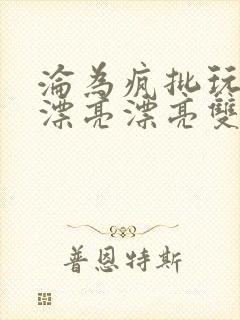 淪為疯批玩
漂亮漂亮雙
普恩特斯